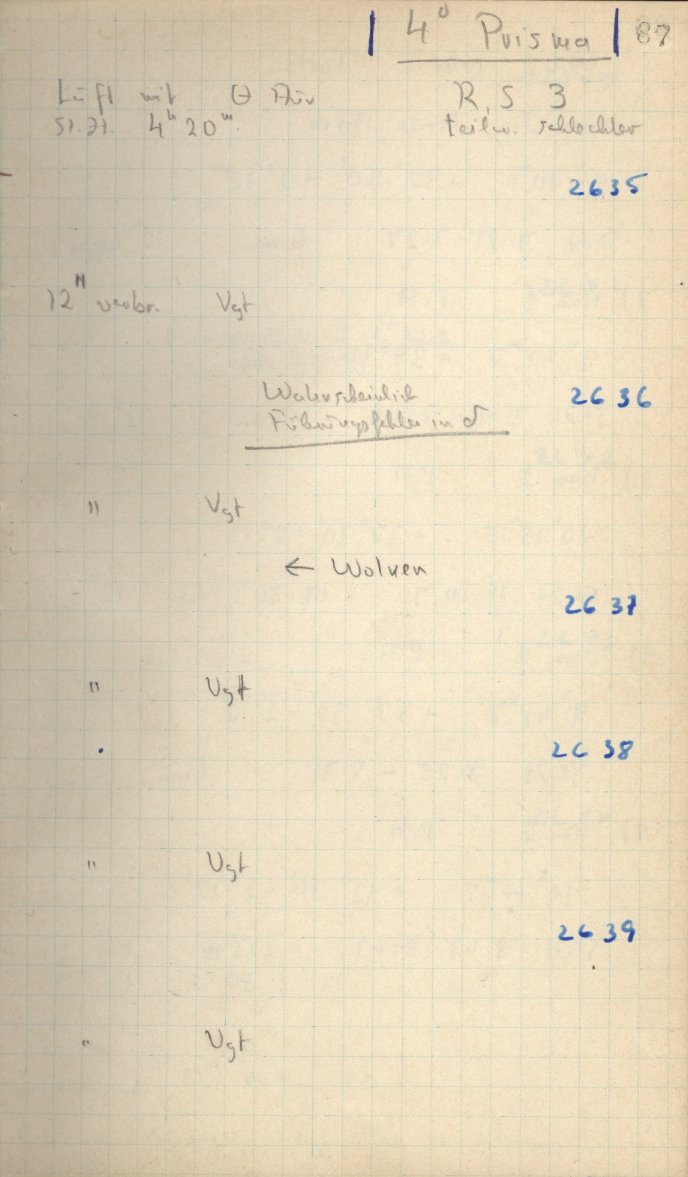 | 4° Prisma | 87
Lüft mit Θ Aur R, S 3
St. Zt. 4ʰ 20ᵐ teilw. schlechter
2635
12" verbr. Vgt
Wahrscheinlich 2636
Führungsfehler in δ
" Vgt
← Wolken
2637
" Vgt
2638
" Vgt
2639
" Vgt